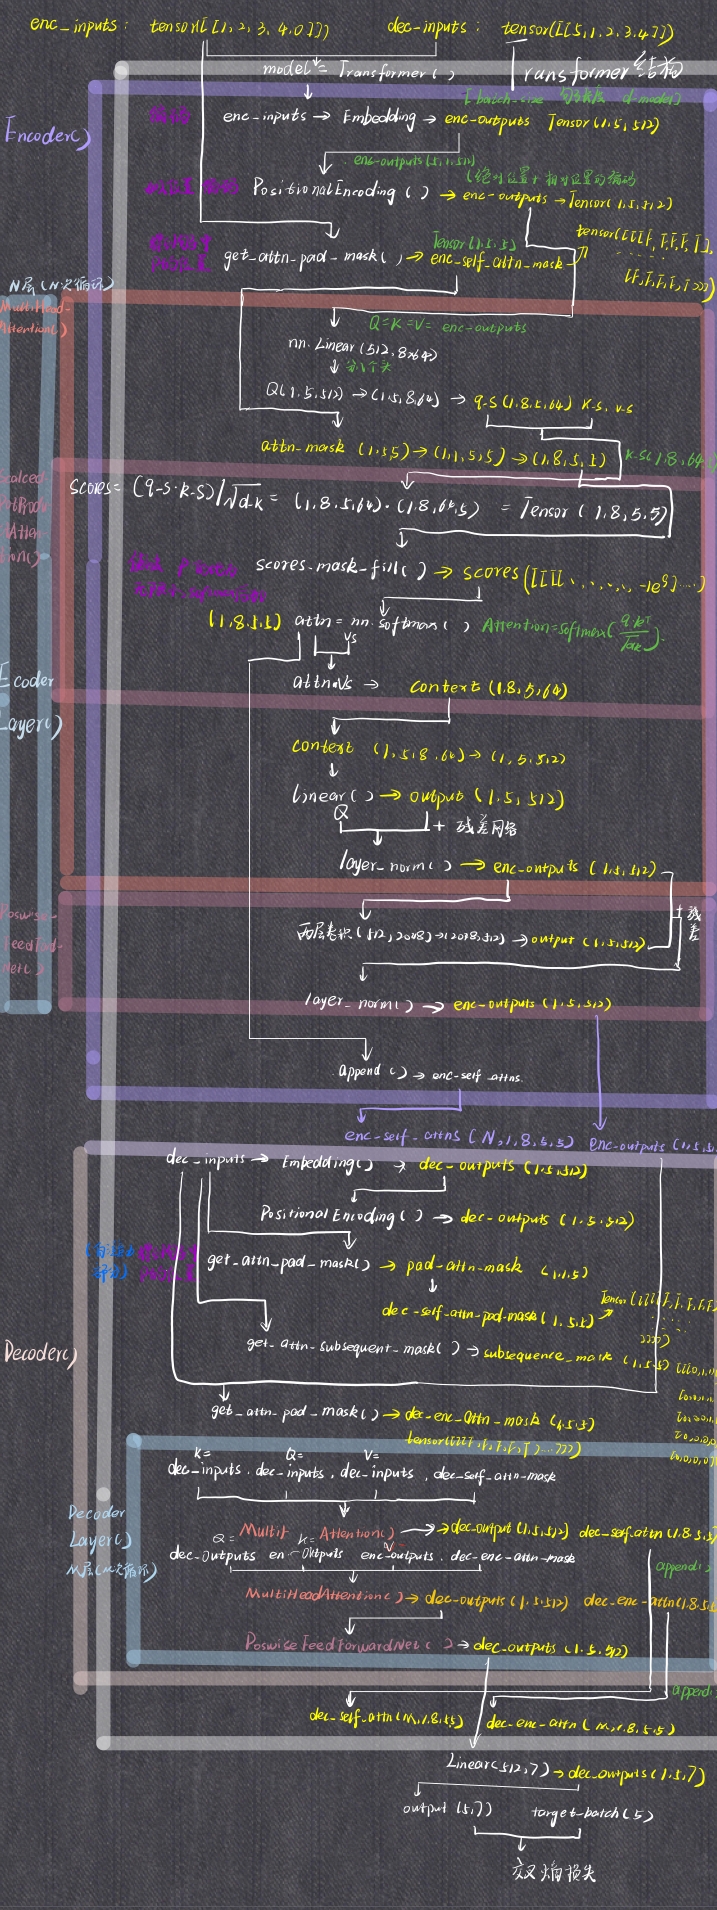 enc_inputs: tensor([[1,2,3,4,0]]) dec-inputs: tensor([[5,1,2,3,4]])
model = Transformer() Transformer结构
Encoder() [batch-size 句子长度 d-model]
enc-inputs → Embedding → enc-outputs Tensor(1,5,512)
enc-outputs(1,5,512) (绝对位置+相对位置的编码
Positional Encoding() → enc-outputs → Tensor(1,5,512)
Tensor(1,5,5) tensor([[[F,F,F,F,T],
get_attn-pad-mask() → enc-self-attn-mask
[F,F,F,F,T]]])
N层(N次循环)
MultiHead-
Attention() Q=K=V= enc-outputs
nn.Linear(512,8×64)
分8个头
Q(1,5,512) → (1,5,8,64) → q-s(1,8,5,64) k-s, v-s
attn-mask (1,5,5) → (1,1,5,5) → (1,8,5,5) k-s(1,8,64,
scores= (q-s·k-s)/√d-k = (1,8,5,64)·(1,8,64,5) = Tensor(1,8,5,5)
scores-mask-fill() → scores([[[[.....,-1e9]....)
(1,8,5,5) attn = nn.softmax() Attention=softmax(
vs
attn·vs → context (1,8,5,64)
Layer()
context (1,5,8,64) → (1,5,512)
linear() → output (1,5,512)
Q + 残差网络
layer_norm() → enc-outputs (1,5,512)
+残差
两层卷积(512,2048)→(2048,512) → output (1,5,512)
Net()
layer_norm() → enc-outputs (1,5,512)
append() → enc-self-attns
enc-self-attns (N,1,8,5,5) enc-outputs (1,5,5
dec_inputs → Embedding() → dec-outputs (1,5,512)
Positional Encoding() → dec-outputs (1,5,512)
get_attn-pad-mask() → pad-attn-mask (1,1,5)
dec-self-attn-pad-mask(1,5,5) Tensor([[[
get-attn-subsequent-mask() → subsequence_mask (1,5,5)
Decoder()
get_attn_pad_mask() → dec-enc-attn-mask (1,5,5)
K= Q= V=
dec-inputs, dec-inputs, dec-inputs, dec-self-attn-mask
Decoder
Layer()
N层(N次循环)
Attention() → dec-output(1,5,512) dec-self-attn(1,8,5,5
Q= K=
dec-outputs enc-outputs enc-outputs, dec-enc-attn-mask
append()
MultiHeadAttention() → dec-outputs (1,5,512) dec-enc-attn(1,8,5,5
Poswise FeedForwardNet() → dec-outputs (1,5,512)
append
dec-self-attn(N,1,8,5,5) dec-enc-attn(N,1,8,5,5)
Linear(512,7) → dec-outputs(1,5,7)
output (5,7) target-batch(5)
交叉熵损失